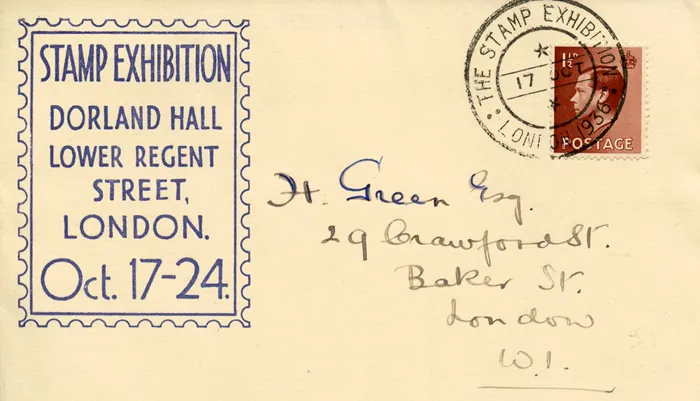 STAMP EXHIBITION
DORLAND HALL
LOWER REGENT
STREET,
LONDON.
Oct. 17-24.
THE STAMP EXHIBITION
17 OCT
LONDON 1936
1½D
POSTAGE
H. Green Esq.
29 Crawford St.
Baker St.
London
W.1.